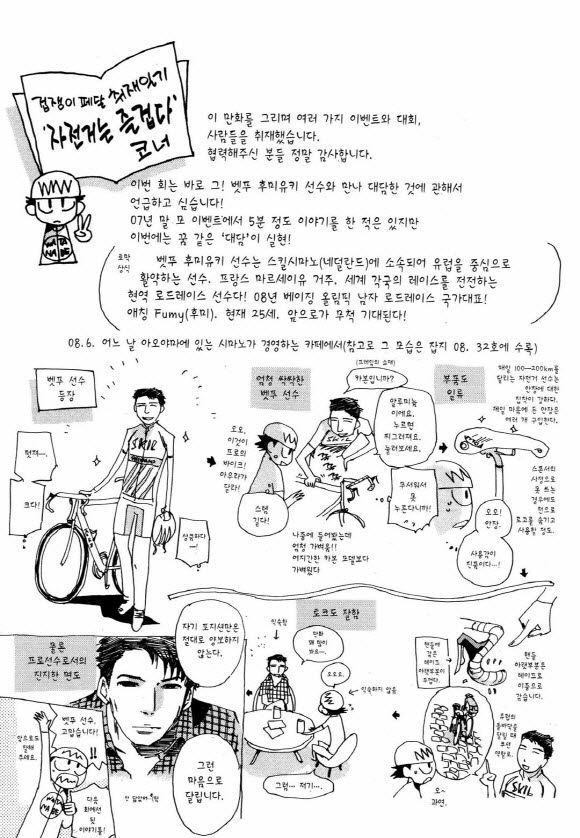 겁쟁이 페달 취재일기
'자전거는 즐겁다'
코너
이 만화를 그리며 여러 가지 이벤트와 대회,
사람들을 취재했습니다.
협력해주신 분들 정말 감사합니다.
이번 회는 바로 그! 벳푸 후미유키 선수와 만나 대담한 것에 관해서
언급하고 싶습니다!
07년 말 모 이벤트에서 5분 정도 이야기를 한 적은 있지만
이번에는 꿈 같은 '대담'이 실현!
WATA
NABE
토막
상식
벳푸 후미유키 선수는 스킬시마노(네덜란드)에 소속되어 유럽을 중심으로
활약하는 선수. 프랑스 마르세이유 거주. 세계 각국의 레이스를 전전하는
현역 로드레이스 선수다! 08년 베이징 올림픽 남자 로드레이스 국가대표!
애칭 Fumy(후미). 현재 25세. 앞으로가 무척 기대된다!
08.6. 어느 날 아오야마에 있는 시마노가 경영하는 카페에서(참고로 그 모습은 잡지 08. 32호에 수록)
벳푸 선수
등장
멋져….
크다!
SKIL
SHIMANO
상큼하다
…!
엄청 싹싹한
벳푸 선수
(프레임의 소재)
카본입니까?
알루미늄
이에요.
누르면
찌그러져요.
눌러보세요.
오오,
이것이
프로의
바이크!
아우라가
달라!
스템
길다!
SKIL
무서워서
못
누릅니다!
나중에 들어봤는데
엄청 가벼움!!
어지간한 카본 모델보다
가벼웠다
부품도
일류
매일 100—200km를
달리는 자전거 선수는
안장에 대한
집착이 강하다.
제일 마음에 든 안장은
여러 개 구입한다.
스폰서의
사정으로
못 쓰는
경우에도
천으로
로고를 숨기고
사용할 정도.
오오!
안장,
사용감이
진품이다…!
핸들에
감은
테이프
아랫부분이
두껍다.
핸들
아랫부분은
테이프로
이중으로
감습니다.
유럽의
돌바닥을
달릴 때
쿠션
역할로.
SKIL
오~
과연.
토크도 잘함
익숙함
만화
꽤 많이
봐요…
오오오.
익숙하지 않음
그럼… 저기….
물론
프로선수로서의
진지한 면도
자기 포지션만은
절대로 양보하지
않는다.
그런
마음으로
달립니다.
벳푸 선수,
고맙습니다!
앞으로도
잘해
주세요.
다음
화에선
뒷
이야기를!